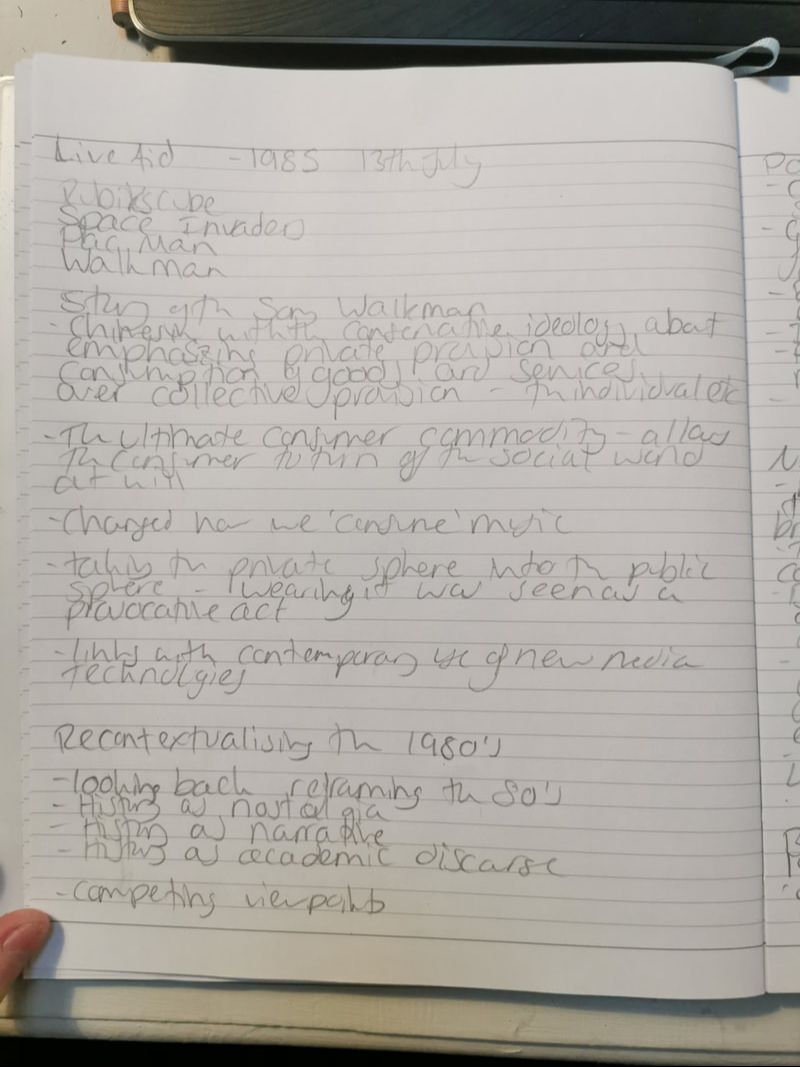 Live Aid - 1985 13th July
Rubikscube
Space Invaders
Pac Man
Walkman
Story with Sony Walkman
- with conservative ideology about
emphasizing private provision and
consumption of goods and services
over collective provision - th individual etc
- Th ultimate consumer commodity - allows
th consumer to turn of th social world
at will
- Changed how we 'consume' music
- taking th private sphere into th public
sphere - wearing it was seen as a
provocative act
- links with contemporary use of new media
technolgies
Recontextualising th 1980's
- looking back reframing th 80's
- History as nostalgia
- History as narrative
- History as academic discourse
- competing viewpoints